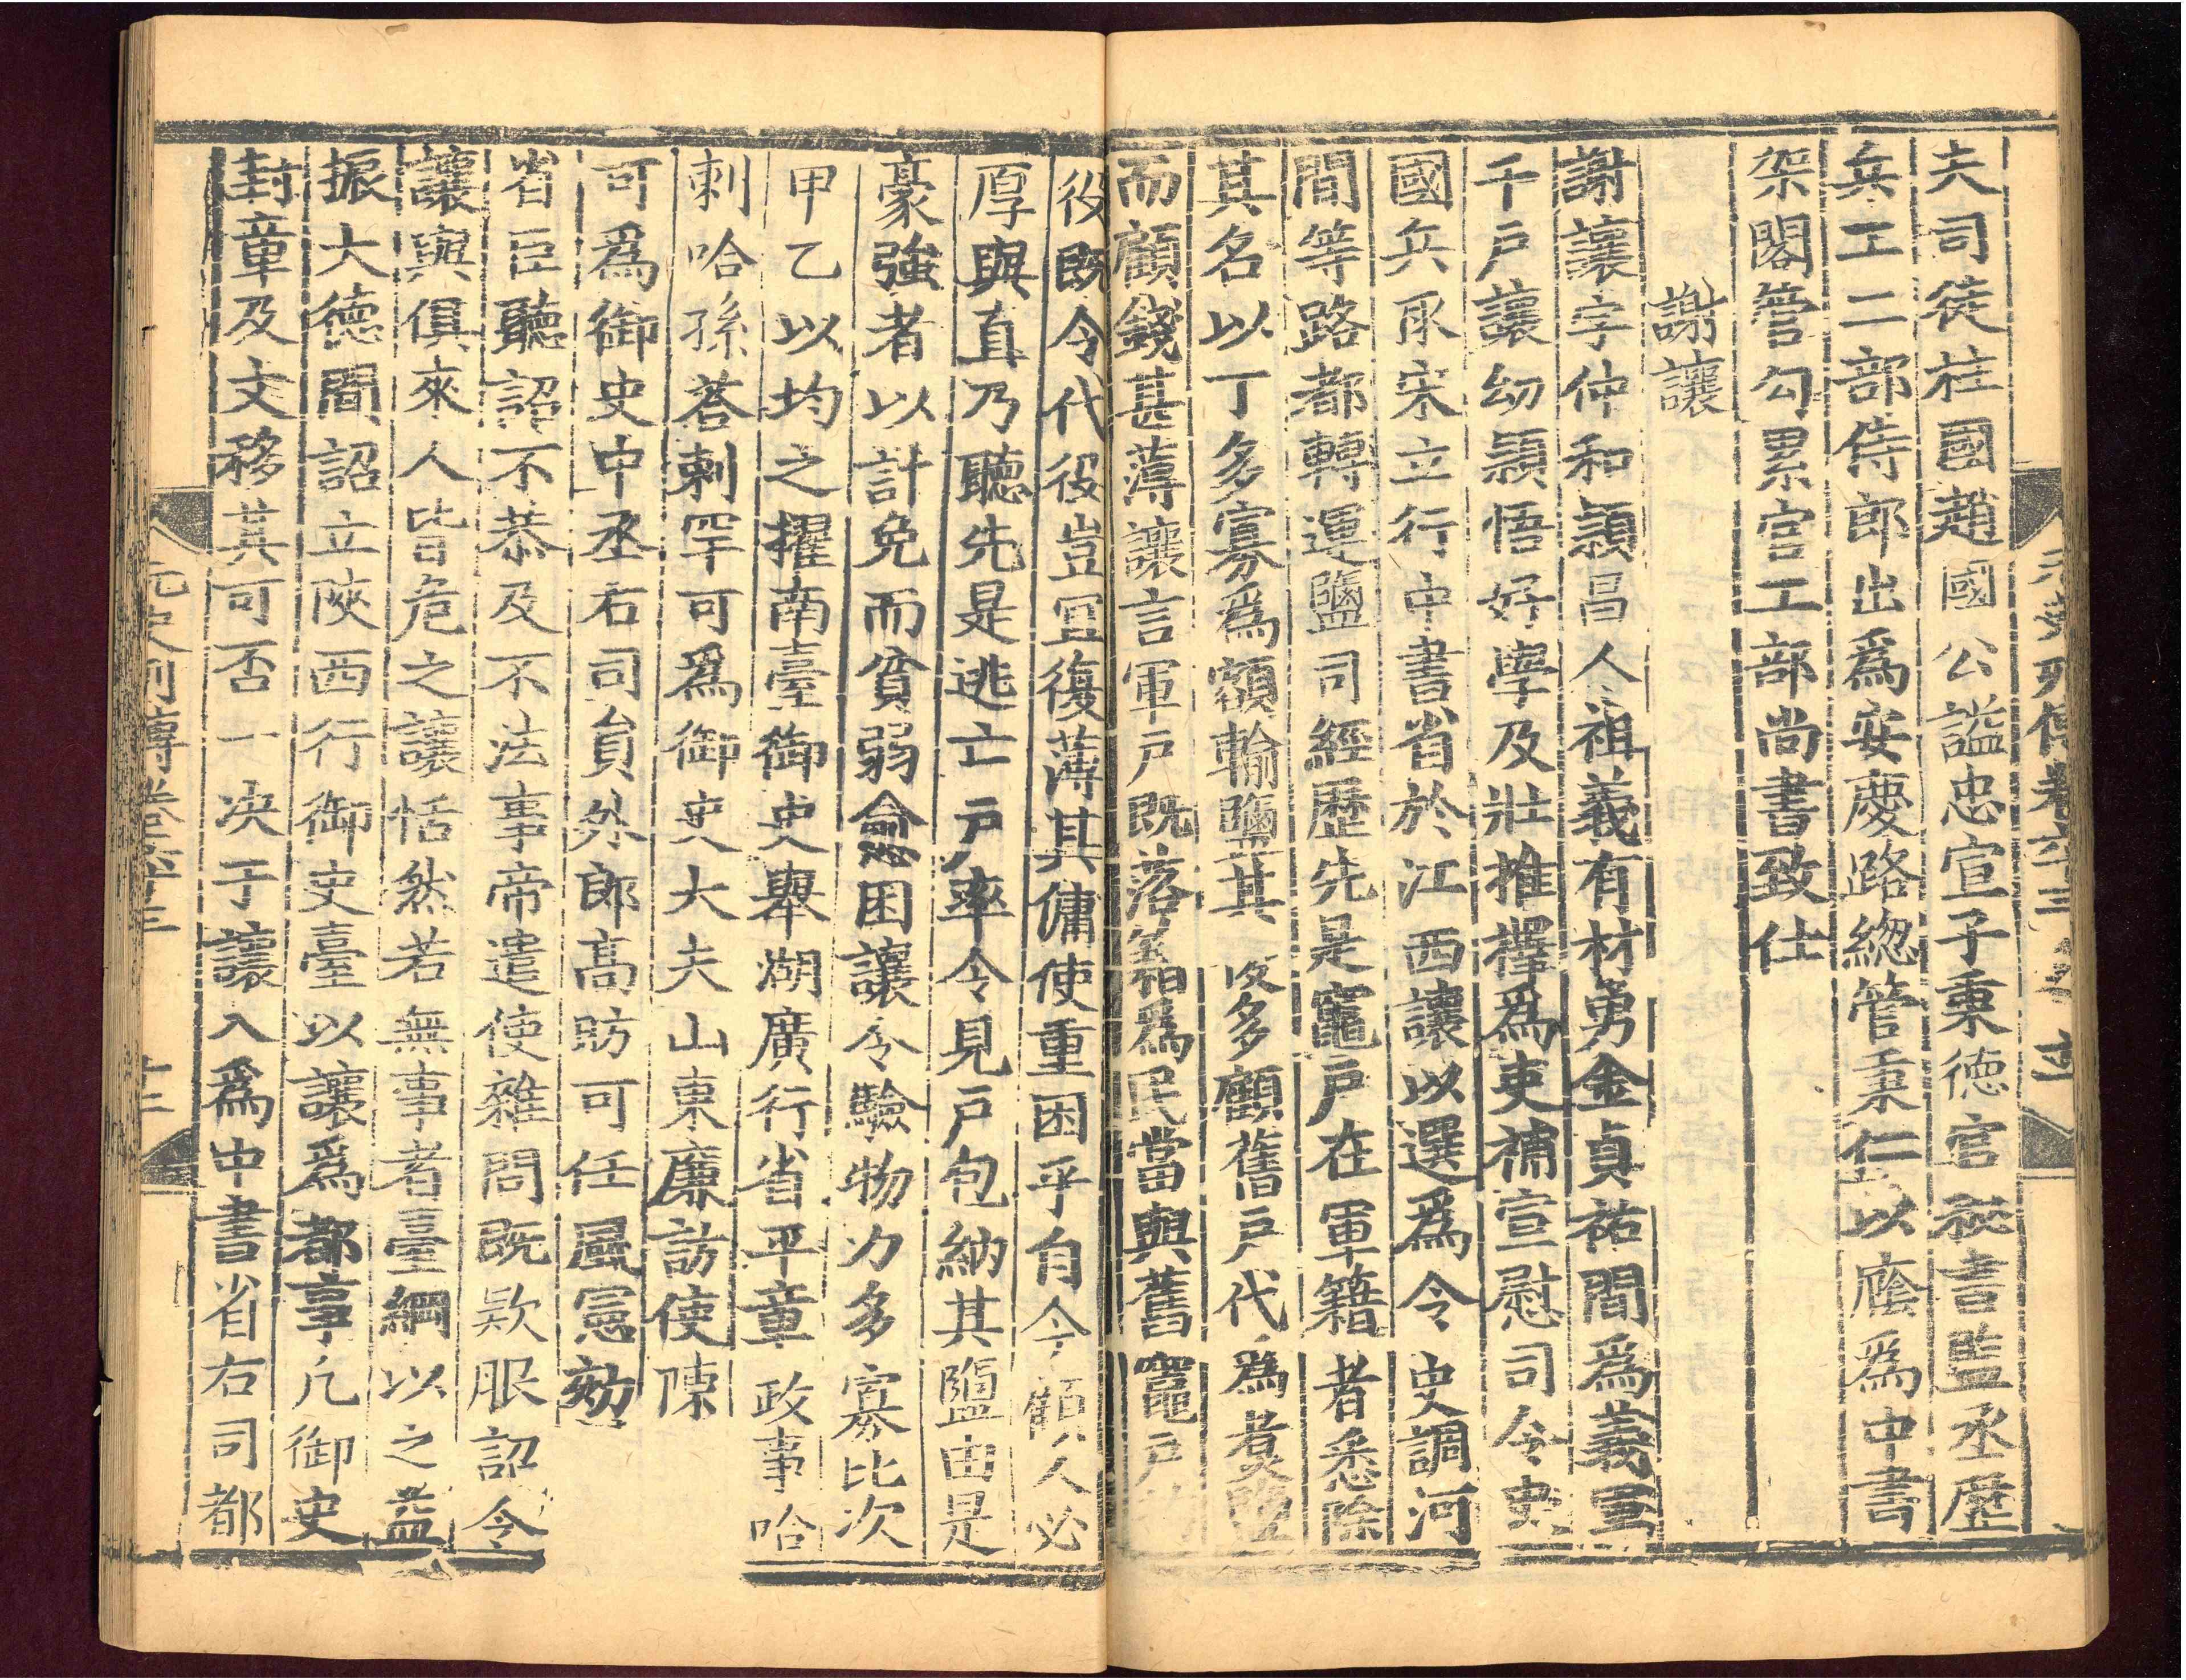 夫司徒柱國趙國公謚忠宣子秉德官秘書監丞歷
兵工二部侍郎出爲安慶路緫管秉仁以廕爲中書
架閣管勾累官工部尚書致仕
謝讓
謝讓字仲和頴昌人祖義有材勇金貞祐間爲義軍
千戶讓幼頴悟好學及壯推擇爲吏補宣慰司令史
國兵取宋立行中書省於江西讓以選爲令史調河
間等路都轉運鹽司經歷先是竈戶在軍籍者悉除
其名以丁多寡爲額輸鹽其後多顧舊戶代爲煑鹽
而顧錢甚薄讓言軍戶既落籍爲民當與舊竈戶
役既令代役豈宜復薄其傭使重困乎自今顧人必
厚與直乃聽先是逃亡戶率令見戶包納其鹽由是
豪強者以計免而貧弱愈困讓令驗物力多寡比次
甲乙以均之擢南臺御史舉湖廣行省平章政事哈
剌哈孫荅剌罕可爲御史大夫山東廉訪使陳
可爲御史中丞右司員外郎高昉可任風憲劾
省臣聽詔不恭及不法事帝遣使雜問既欵服詔令
讓與俱來人皆危之讓恬然若無事者臺綱以之益
振大德間詔立陝西行御史臺以讓爲都事凢御史
封章及文移其可否一决于讓入爲中書省右司都
元史列傳卷六十三
元史列傳卷六十三
十二